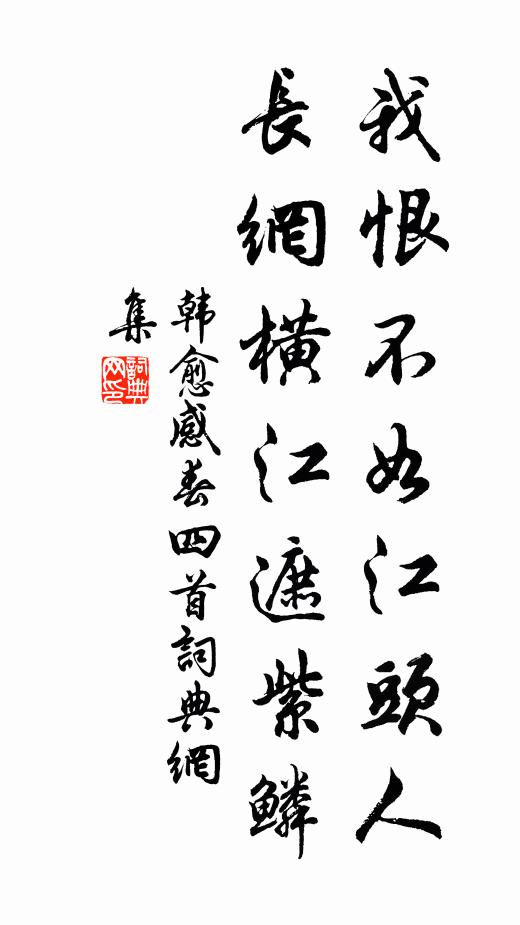 我恨不如江頭人
長網橫江遮紫鱗
韩愈感春四首詞典網
集
詞典
网印